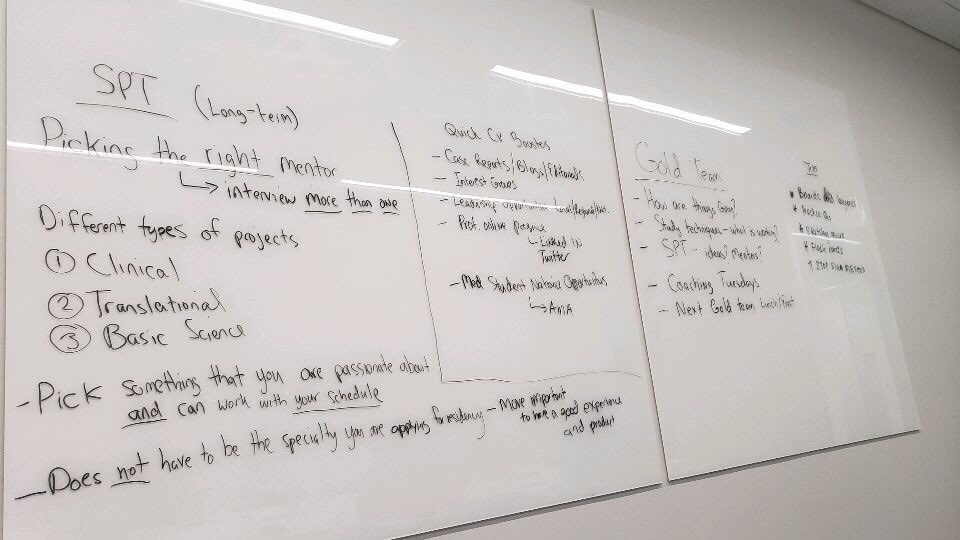 SPT (Long-term)
Picking the right mentor
↳ interview more than one
Different types of projects
① Clinical
② Translational
③ Basic Science
- Pick something that you are passionate about
and can work with your schedule
- Does not have to be the specialty you are applying for residency - More important
to have a good experience
and product
Quick CV Boosters
- Case Reports/Blogs/Editorials
- Interest Groups
- Leadership Opportunities Local/Regional/
- Prof. online presence
↳ Linked In
Twitter
- Med Student National Opportunities
↳ AMA
Gold Team
- How are things Going?
- Study techniques - what is working?
- SPT - ideas? Mentors?
- Coaching Tuesdays
- Next Gold team Lunch/
* Boards
* Sketchy micro
* Flash cards